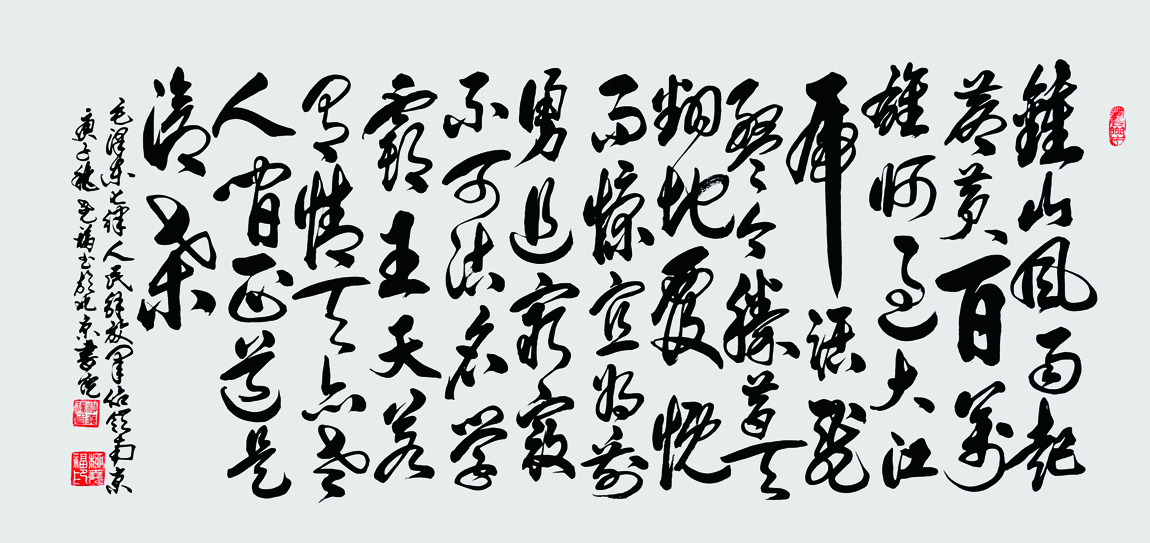 鍾山風雨起
蒼黃百萬
雄師過大江
虎踞龍
盤今勝昔天
翻地覆慨
而慷宜將剩
勇追窮寇
不可沽名學
霸王天若
有情天亦老
人間正道是
滄桑
毛澤東七律人民解放軍佔領南京
庚子秋福書於北京書院